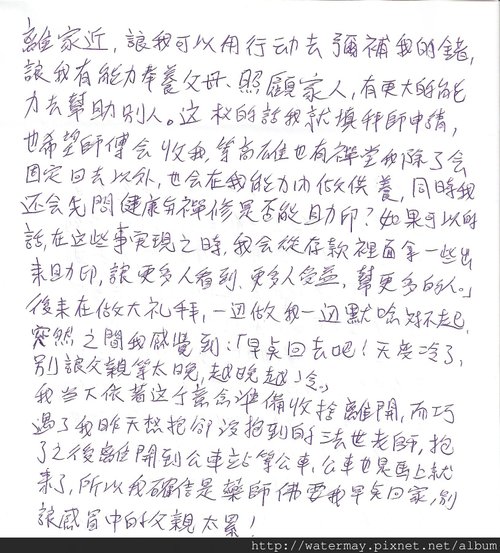 離家近,讓我可以用行动去彌補我的錯,
讓我有能力奉養父母、照顧家人,有更大的能
力去幫助別人。这 的話我就填 師申請,
也希望師傅会收我,等高雄也有禪堂我除了会
固定回去以外,也会在我能力内做供養,同時我
还会先問健康 禪修是否能助印?如果可以的
話,在这些事实現之時,我会從存款裡面拿一些出
来助印,讓更多人看到、更多人受益,幫更多的人。」
後来在做大礼拜,一边做我一边默唸对不起,
突然之間我感覺到:「早点回去吧!天变冷了,
別讓父親等太晚,越晚越冷。」
我当下依著这个意念準備收拾離開,而巧
遇了我昨天想抱卻沒抱到的 法世老師,抱
了之後離開到公車站等公車,公車也是馬上就
来了,所以我確信是藥師佛要我早点回家,別
讓感冒中的父親太累!
http://watermay.pixnet.net/album